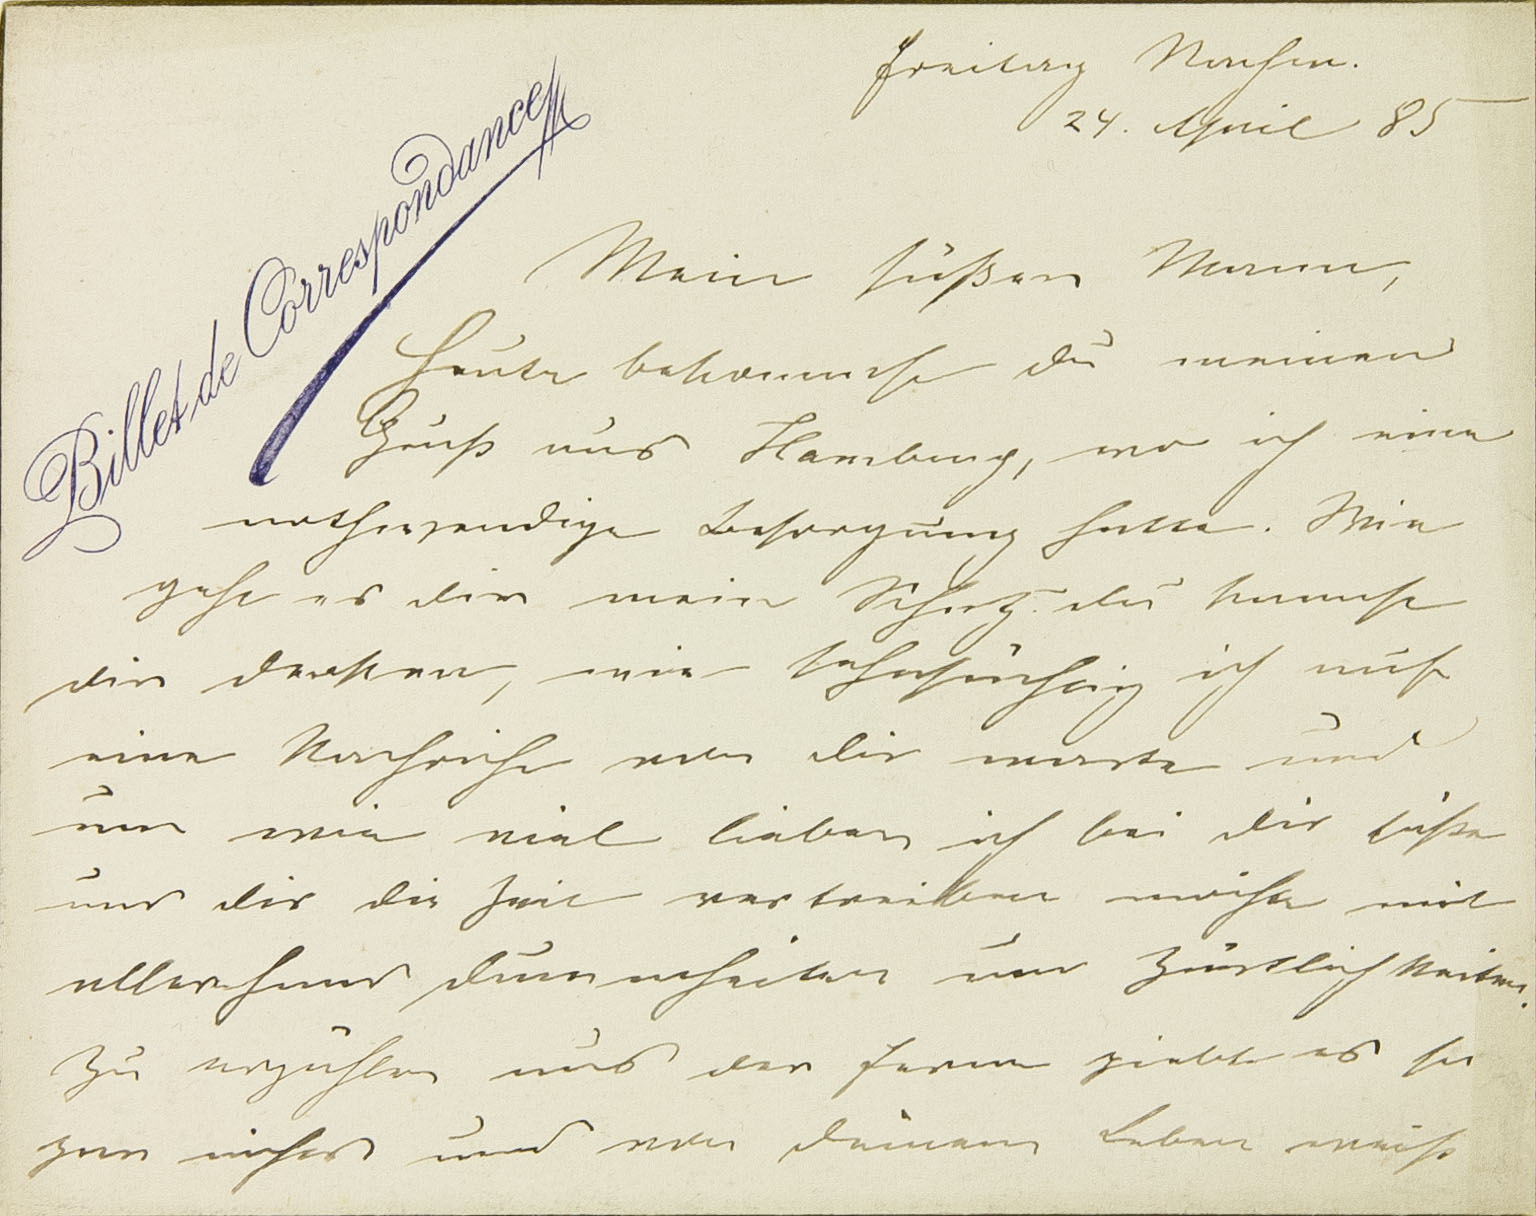 Billet de Correspondance
Freitag Nachm.
24. April 85
Mein süßer Mann,
Heute bekommst du meinen
Gruß aus Hamburg, wo ich eine
nothwendige Besorgung hatte. Wie
geht es dir mein Schatz. du kannst
dir denken, wie sehnsüchtig ich auf
eine Nachricht von dir warte und
um wie viel lieber ich bei dir säße
und dir die Zeit vertreiben möchte mit
allerhand Dummheiten und Zärtlichkeiten.
Zu erzählen aus der Ferne giebt es so
gar nichts und von deinem Leben weiß